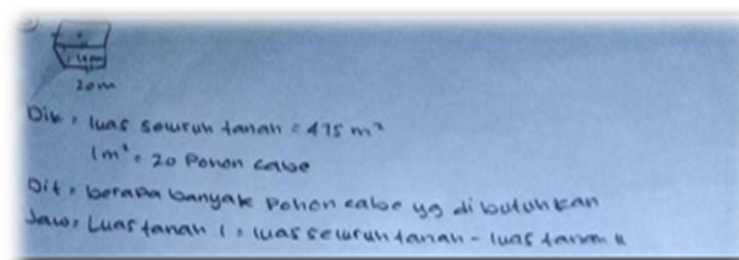 20m
Dik : luas seluruh tanah = 475 m²
1m² = 20 Pohon cabe
Dit : berapa banyak Pohon cabe yg dibutuhkan
Jawab : Luas tanah I = luas seluruh tanah - luas tanah II